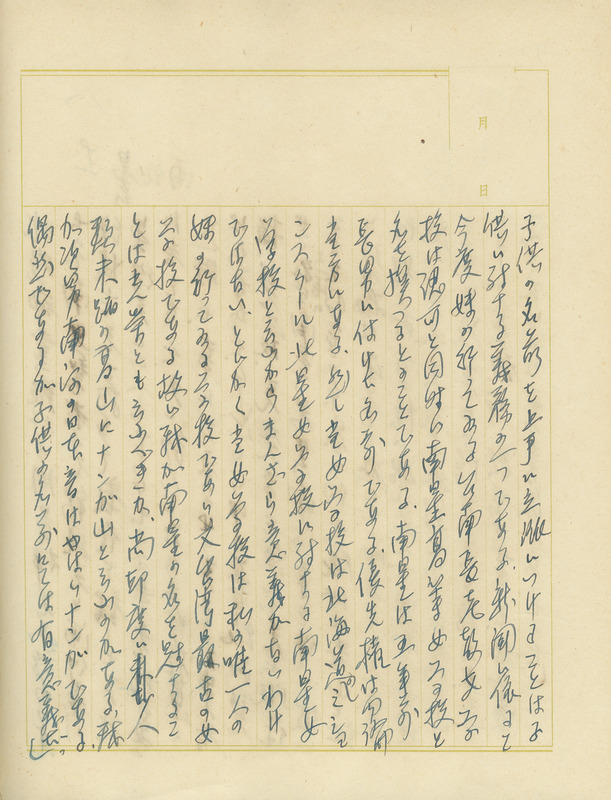 月
日
子供の名前を上手に立派につけることは子
供に対する義務の一つである。新聞に依って
今度妹の行ってゐる台南長老教女学
校は認可と同時に南星高等女学校と
名を換へるとのことである。南星は五年前
長男に付けた名前である。優先権は
当方にある。但し女学校は北海道之
ンスクール北星女学校に対する南星女
学校と云ふからまんざら意義がないわけ
ではない。とにかく女学校は私の唯一人の
妹の行ってゐる学校であり又台湾最古の女
学校である故に我が南星の名を冠すること
とは光栄とも云ふべきか、尚印度に
未踏の高山にナンガ山と云ふのがある、我
が次男南河の日本音はやはりナンガである。
偶然であるが子供の名前としては有意義だ